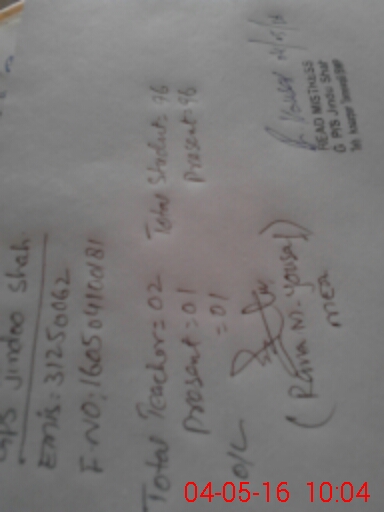 G/P/S Jindoo Shah
Emis: 31250062
F.NO: 160504100181
Total Teacher = 02 Total Student: 96
Present = 01 Present: 96
O/L = 01
(Rana M. Yousaf)
MEA
HEAD MISTRESS
G P/S Jindu Shah
04-05-16 10:04